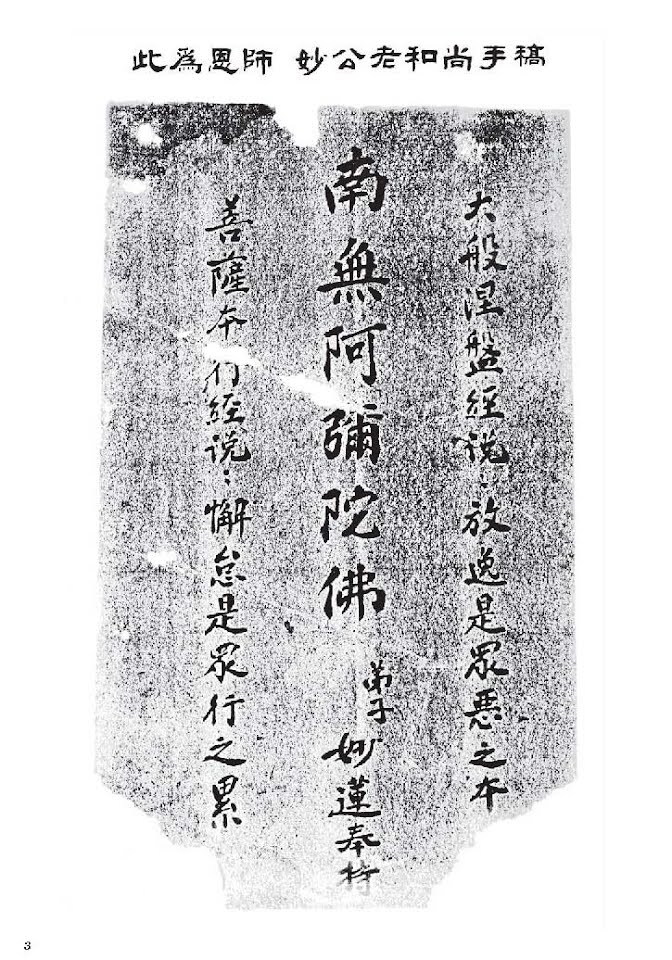 此爲恩師 妙公老和尚手稿
大般涅盤經说：放逸是眾悪之本
南無阿彌陀佛
弟子 妙蓮奉持
菩薩本行經说：懈怠是眾行之累
3